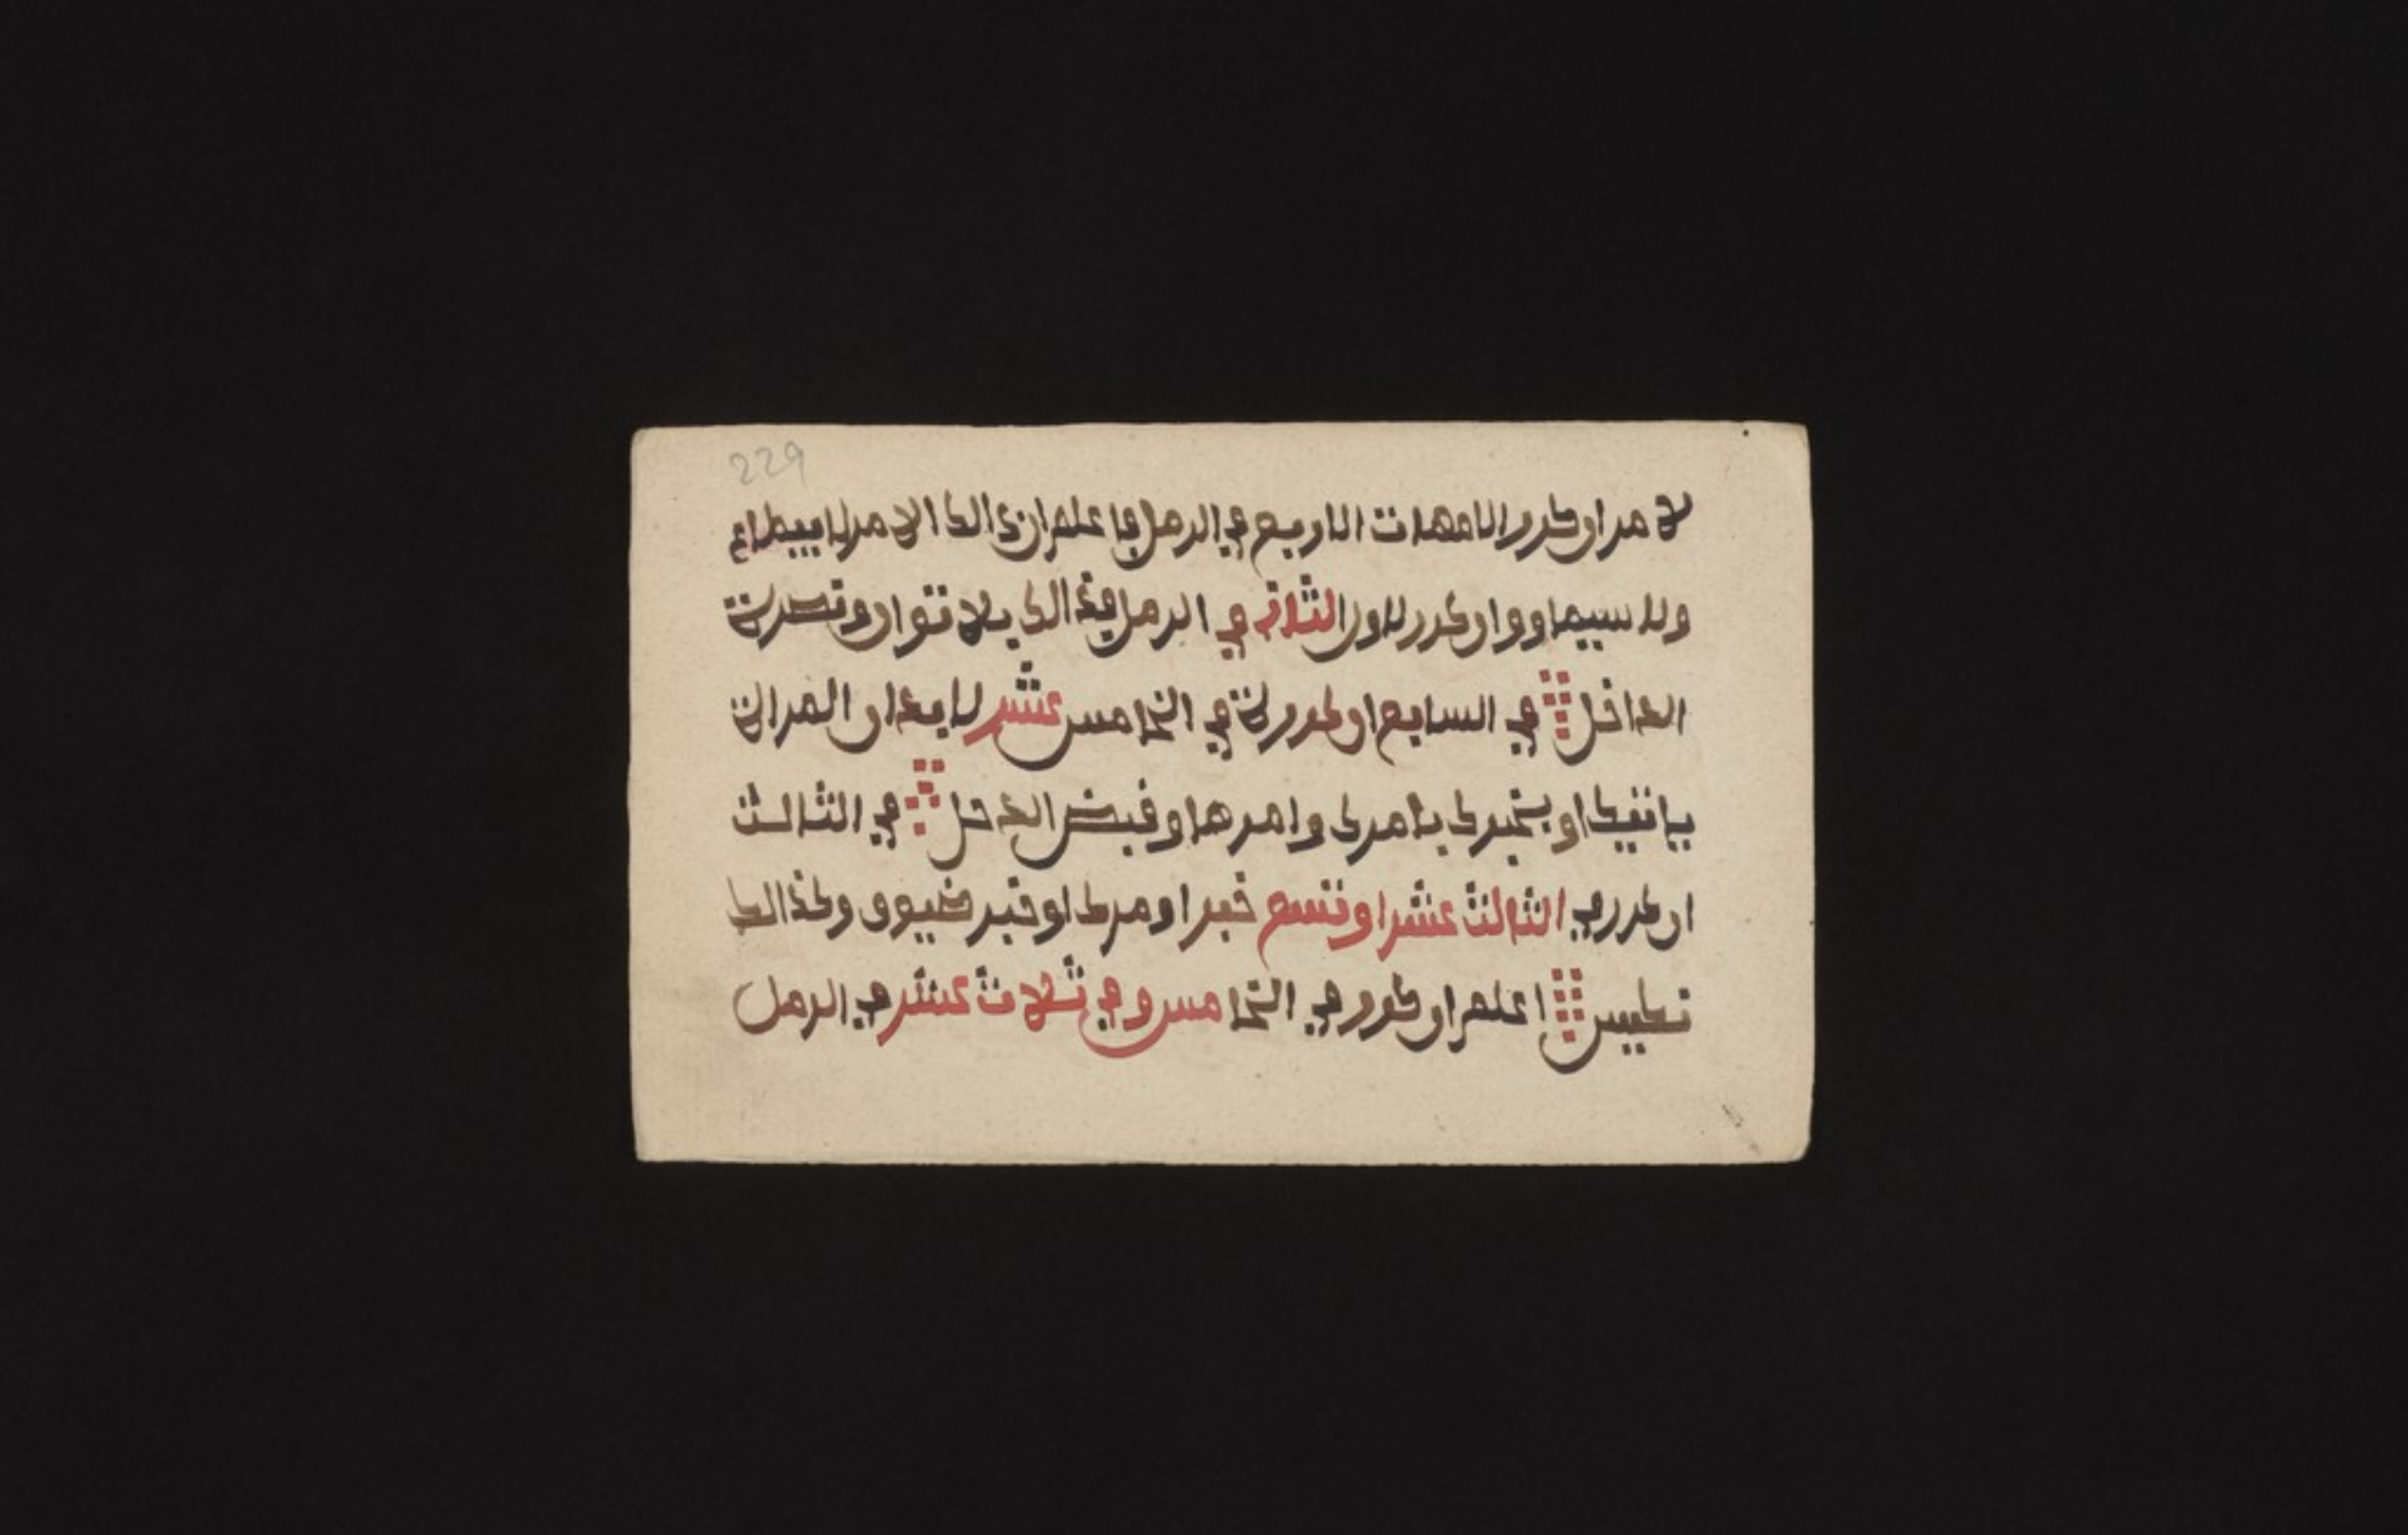 229
لامر او كرر الامهات الاربع في الرمل فاعلم ان ذالك الامر لا
ولا سيما و وان كرر الاول الثاني في الرمل فذالك بلا توان ونصرة
الداخل في السابع ان كررت في الخامس عشر لا بد ان المراة
ياتيك او يخبرك بامرك وامرها وقبض الداخل في الثالث
ان كرر في الثالث عشر او تسع خبر او مرك او خبر ضيوف وكذالك
اعلم ان كرر في الخامس وفي ثلاث عشر في الرمل